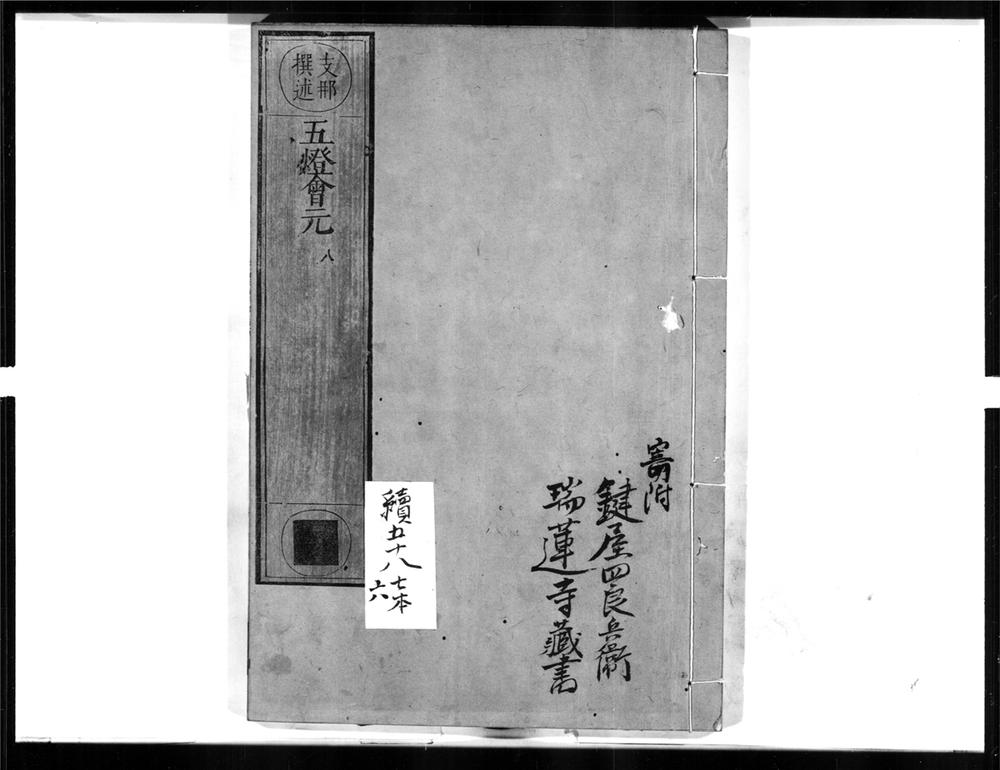 寄附
鍵屋四良兵衞
瑞蓮寺藏書
續五十八
七本
六
支那
撰述
五燈會元
八